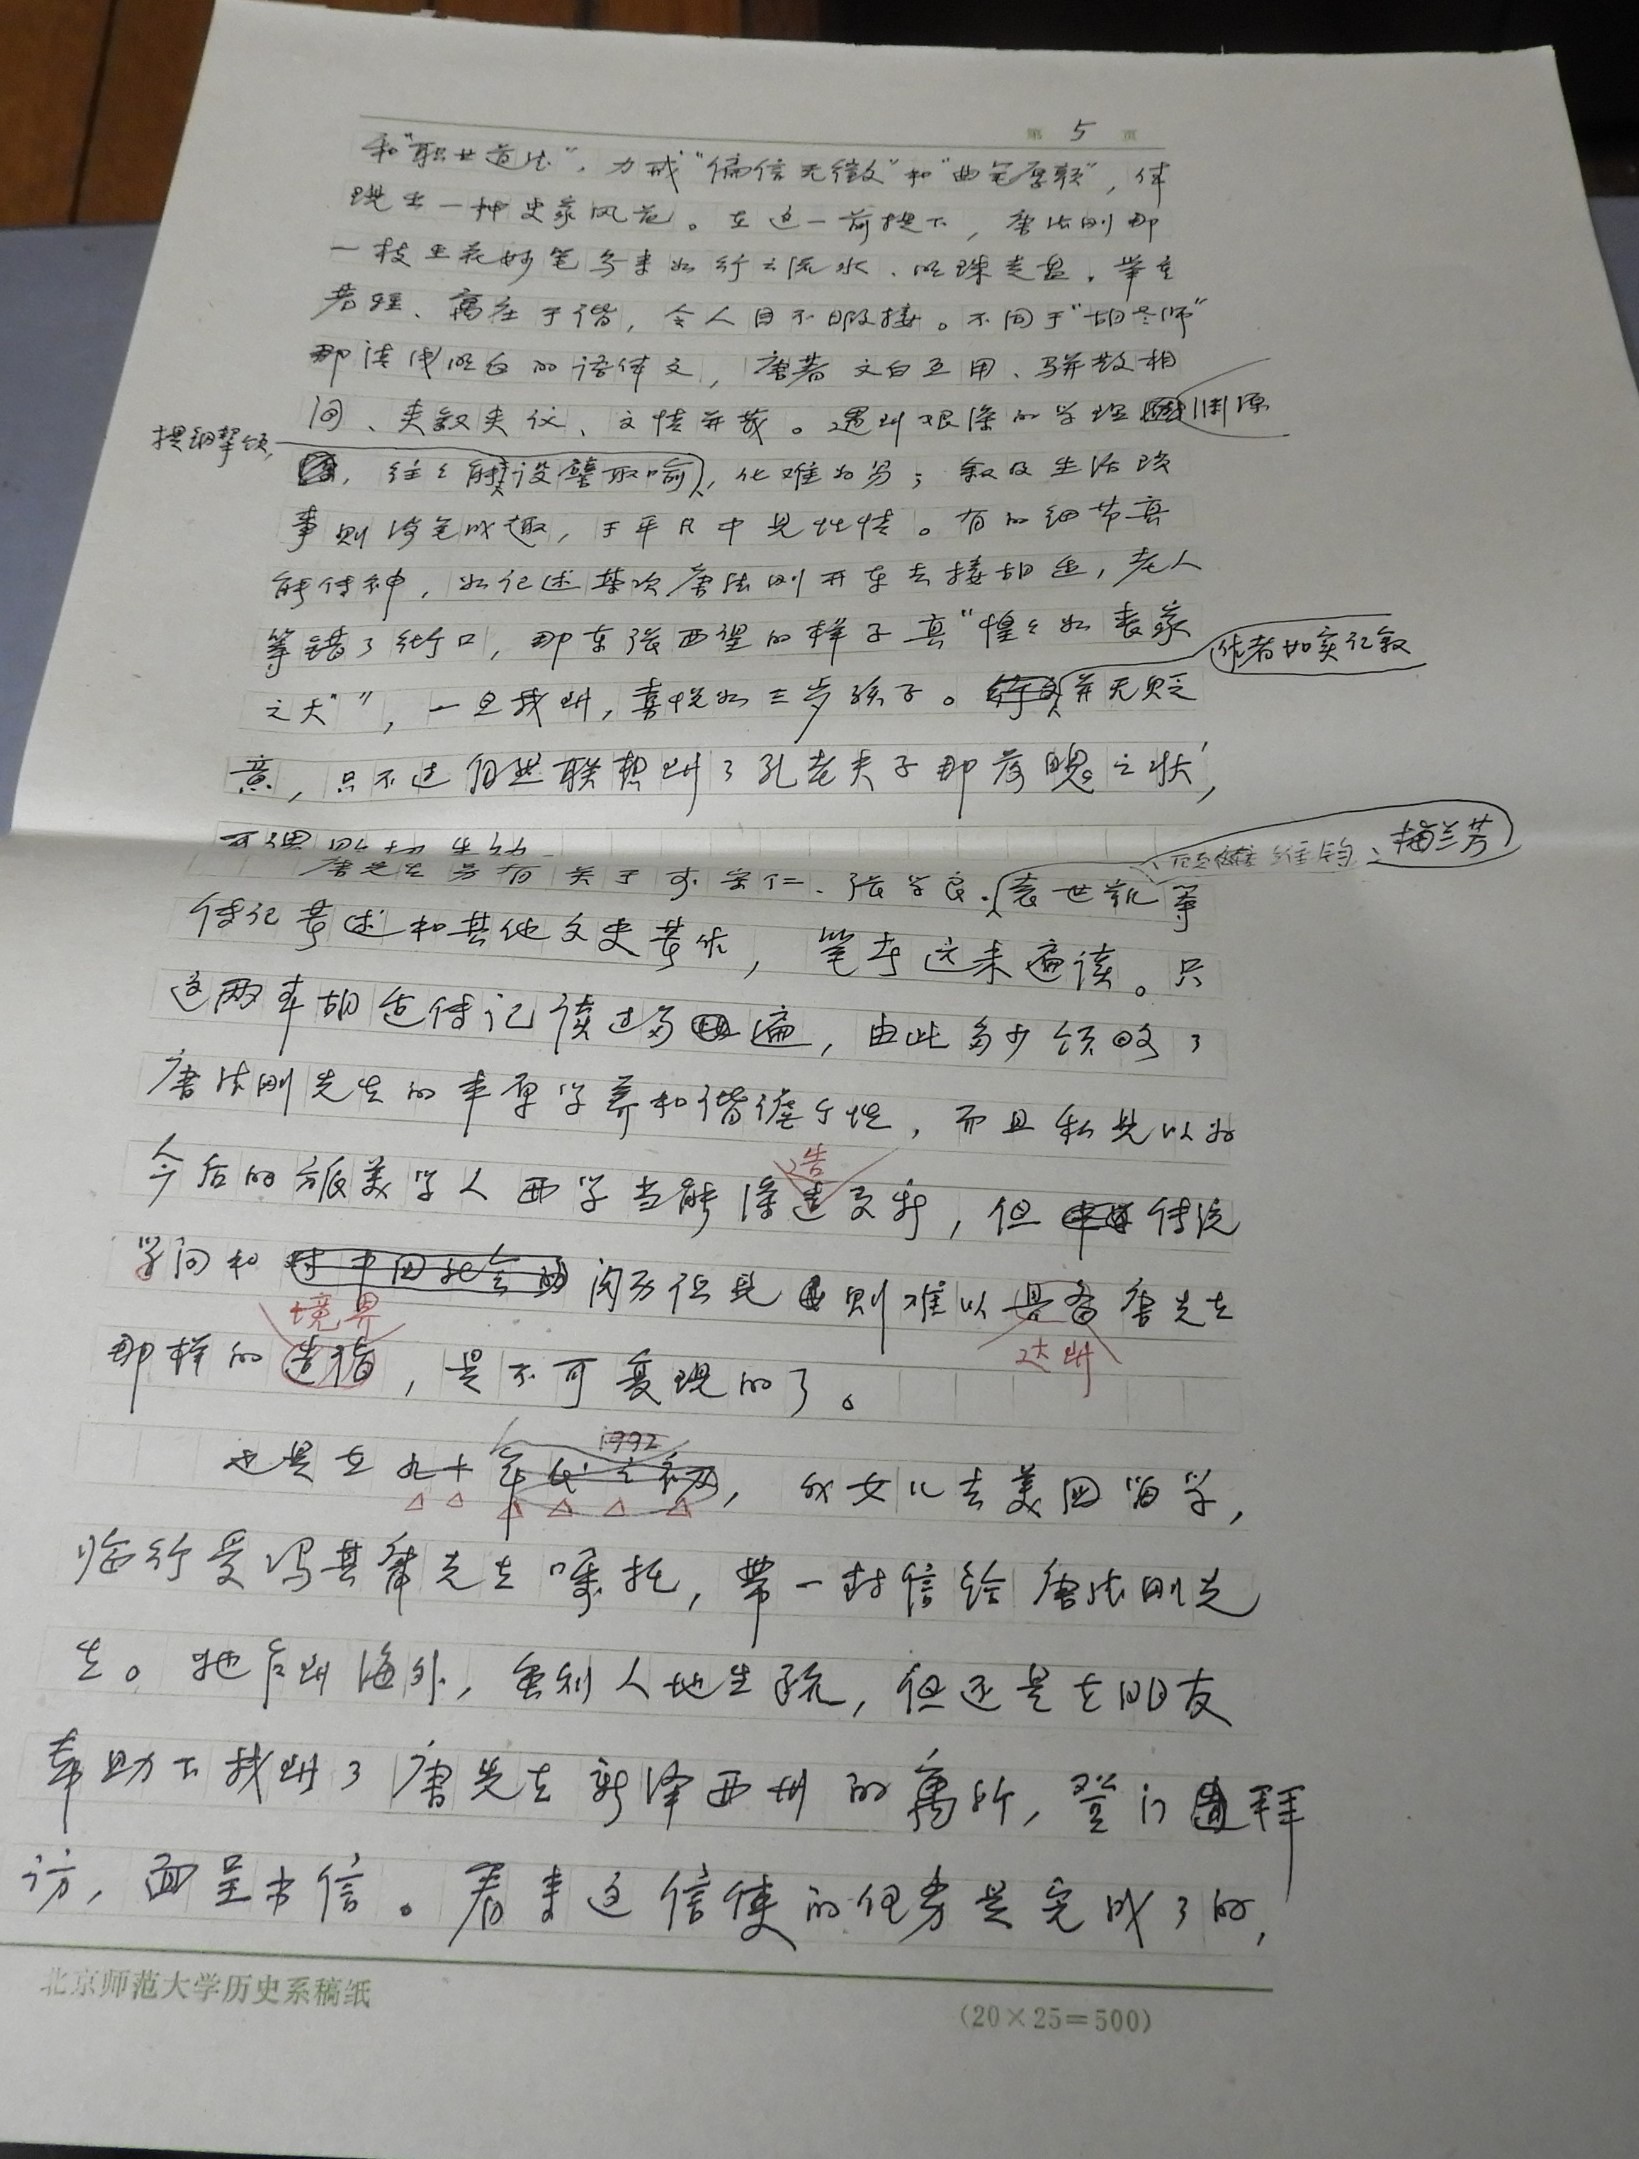 第 5 页
和“职业道德”，力戒“偏信无徵”和“曲笔厚颜”，体
现出一种史家风范。在这一前提下，唐德刚那
一枝生花妙笔写来如行云流水、明珠走盘，举重
若轻、寓庄于谐，令人目不暇接。不同于“胡老师”
那清浅明白的语体文，唐著文白互用、骈散相
间、夹叙夹议、文情并茂。遇到艰深的学理渊源
提纲挈领，
，往往能设譬取喻，化难为易；叙及生活琐
事则涉笔成趣，于平凡中见性情。有的细节真
能传神，如记述某次唐德刚开车去接胡适，老人
等错了街口，那东张西望的样子真“惶惶如丧家
作者如实记叙
之犬”，一旦找到，喜悦如三岁孩子。并无贬
意，只不过自然联想到了孔老夫子那落魄之状，
可谓
顾维钧、梅兰芳
唐先生另有关于李宗仁、张学良、袁世凯等
传记著述和其他文史著作，笔者远未遍读。只
这两本胡适传记读过多遍，由此多少领略了
唐德刚先生的丰厚学养和谐谑个性，而且私见以为
今后的旅美学人西学当能深造更新，但传统
造
学问和对中国社会的阅历但见则难以具备唐先生
境界
达到
那样的造指，是不可复现的了。
1992
也是在九十年代之初，我女儿去美国留学，
临行受冯其庸先生嘱托，带一封信给唐德刚先
生。她后到海外，虽则人地生疏，但还是在朋友
帮助下找到了唐先生新泽西州的寓所，登门拜
访，面呈书信。看来这信使的任务是完成了的，
北京师范大学历史系稿纸
(20×25=500)